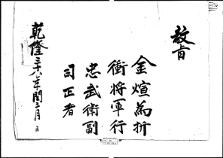 敎旨
金煊爲折
衝將軍行
忠武衛副
司正者
乾隆三十八年閏三月 日